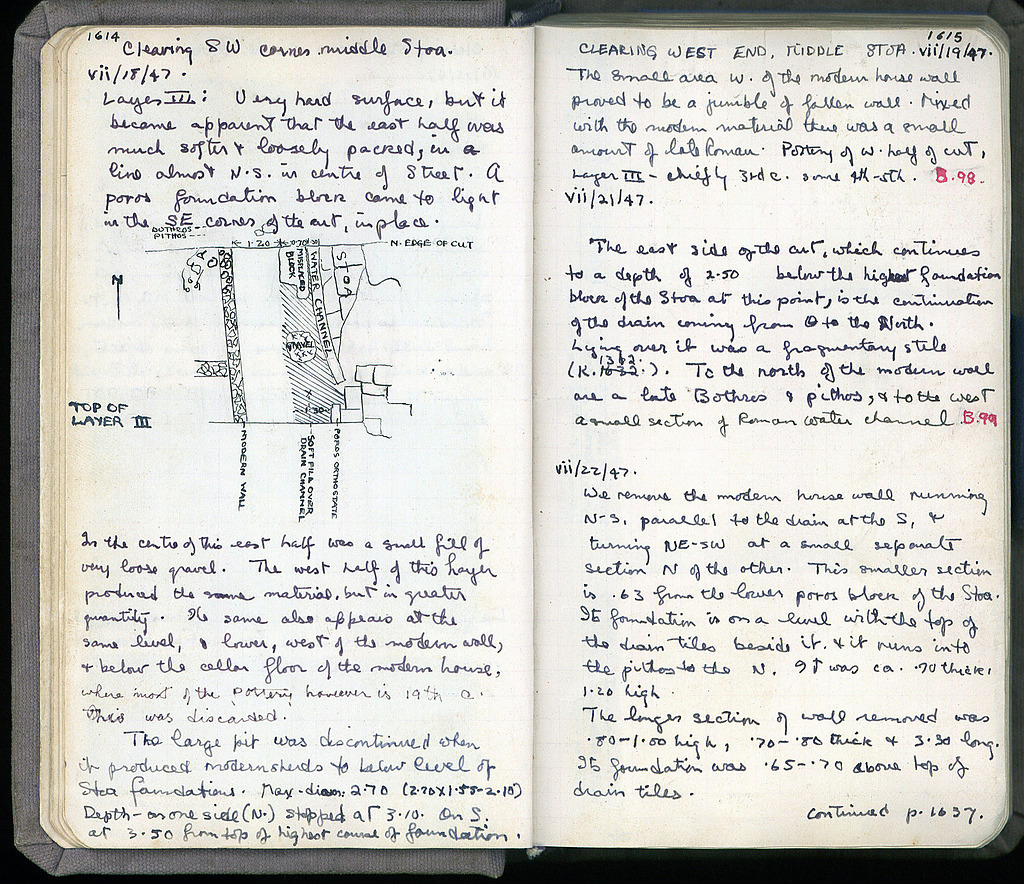 1614
Clearing SW corner middle Stoa.
vii/18/47.
Layer III: Very hard surface, but it
became apparent that the east half was
much softer & loosely packed, in a
line almost N.S. in centre of Street. A
poros foundation block came to light
in the SE corner of the cut, in place.
BOTHROS
PITHOS
1.20
.70
N. EDGE OF CUT
N
MISPLACED BLOCK
WATER CHANNEL
STOA
GRAVEL
1.30
TOP OF
LAYER III
MODERN WALL
SOFT FILL OVER
DRAIN CHANNEL
POROS ORTHOSTATE
In the centre of this east half was a small fill of
very loose gravel. The west half of this layer
produced the same material, but in greater
quantity. The same also appears at the
same level, & lower, west of the modern wall,
& below the cellar floor of the modern house,
where most of the pottery however is 19th c.
This was discarded.
The large pit was discontinued when
it produced modern sherds to below level of
Stoa foundations. Max. diam. 2.70 (2.70x1.55-2.10)
Depth - on one side (N.) stopped at 3.10. On S.
at 3.50 from top of highest course of foundation.
1615
CLEARING WEST END, MIDDLE STOA. vii/19/47.
The small area W. of the modern house wall
proved to be a jumble of fallen wall. Mixed
with the modern material there was a small
amount of late Roman. Pottery of W. half of cut,
Layer III - chiefly 3rd c. some 4th-5th. B.98.
vii/21/47.
The east side of the cut, which continues
to a depth of 2.50 below the highest foundation
block of the Stoa at this point, is the continuation
of the drain coming from Θ to the North.
Lying over it was a fragmentary stele
1362.
(K. ). To the north of the modern wall
are a late Bothros & pithos, & to the west
a small section of Roman water channel. B.99
vii/22/47.
We remove the modern house wall running
N-S, parallel to the drain at the S, &
turning NE-SW at a small separate
section N of the other. This smaller section
is .63 from the lower poros block of the Stoa.
Its foundation is on a level with the top of
the drain tiles beside it. & it runs into
the pithos to the N. It was ca. .70 thick,
1.20 high.
The longer section of wall removed was
.80-1.00 high, .70-.80 thick & 3.30 long.
Its foundation was .65-.70 above top of
drain tiles.
continued p. 1637.